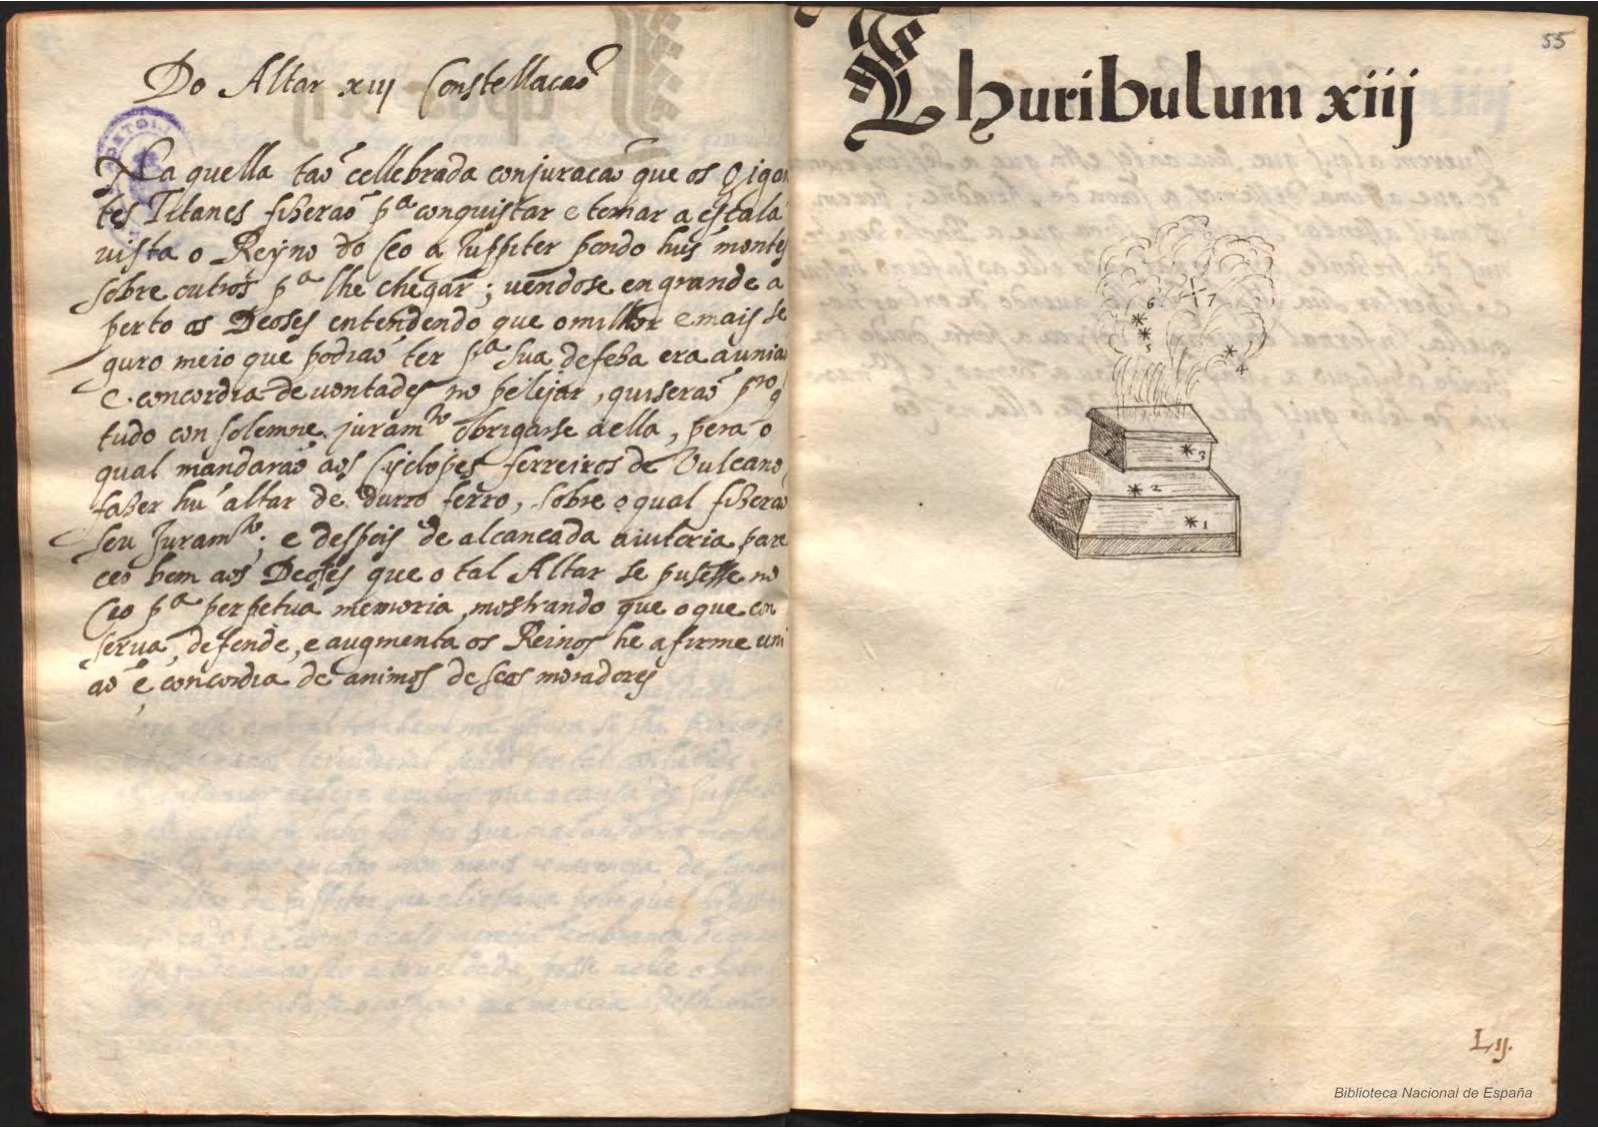 Do Altar xiij Constellacaõ
Na quella taõ cellebrada conjuracaõ que os Gigan
tes Titanes fizeraõ pª conquistar e tomar a escala
vista o Reyno do Ceo a Iuppiter pondo huis montes
sobre outros pª lhe chegar; vendose en grande a
perto os Deoses entendendo que o milhor e mais se
guro meio que podiaõ ter pª sua defeba era a uniaõ
e concordia de vontades no pelijar, quiseraõ
tudo con solemne juramto obrigarse a ella, pera o
qual mandaraõ aos Cyclopes ferreiros de Vulcano,
fazer hu altar de durro ferro, sobre o qual fizeraõ
seu Juramto; e despois de alcancada a uitoria pare
ceo bem aos Deoses que o tal Altar se pusesse no
Ceo pª perpetua memoria, mostrando que o que con
serua, defende, e augmenta os Reinos he a firme uni
aõ e concordia de animos de seos moradores
55
Thuribulum xiij
6
7
5
4
3
2
1
L ij.
Biblioteca Nacional de España